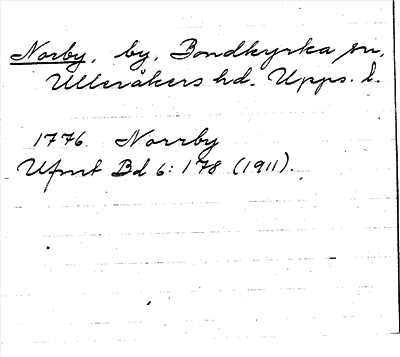 Norby, by, Bondkyrka sn,
Ulleråkers hd. Upps. l.
1776. Norrby
Ufmt Bd 6: 178 (1911).